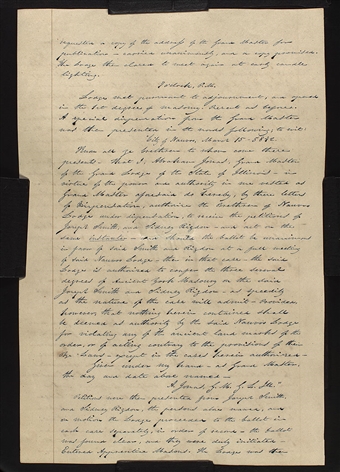 requested a copy of the address of the Grand Master for
publication - carried unanimously, and a copy promised.
The Lodge then closed to meet again at early candle
lighting.
7 o'clock, P.M.
Lodge met pursuant to adjournment, and opened
in the 1st degree of masonry. Present as before.
A special dispensation from the Grand Master
was then presented in the words following, to wit:
City of Nauvoo, March 15 - 5842.
Know all ye brethren to whom come these
presents - that I, Abraham Jonas, Grand Master
of the Grand Lodge of the State of Illinois - in
virtue of the power and authority in me vested as
Grand Master aforesaid do hereby, by these letters
of Dispensation, authorize the Brethren of Nauvoo
Lodge under dispensation, to receive the petitions of
Joseph Smith and Sidney Rigdon - and act on the
same instanter - and should the ballot be unanimous
in favor of said Smith and Rigdon at a full meeting
of said Nauvoo Lodge - then in that case - the said
Lodge is authorized to confer the three several
degrees of Ancient York Masonry on the said
Joseph Smith and Sidney Rigdon - as speedily
as the nature of the case will admit - Provided
however, that nothing herein contained shall
be deemed as authority by the said Nauvoo Lodge
for violating any of the ancient land marks of the
order, or of acting contrary to the provisions of
By-Laws - except in the cases herein authorized -
Given under my hand - as Grand Master,
the day and date above named -
A. Jonas, G. M. G. L. Ill.
Petitions were then presented from Joseph Smith,
and Sidney Rigdon, the persons above named, and
on motion the Lodge proceeded to the ballot in
each case separately, in order of names - the ballot
was found clear, and they were duly initiated
Entered Apprentice Masons. The Lodge was then